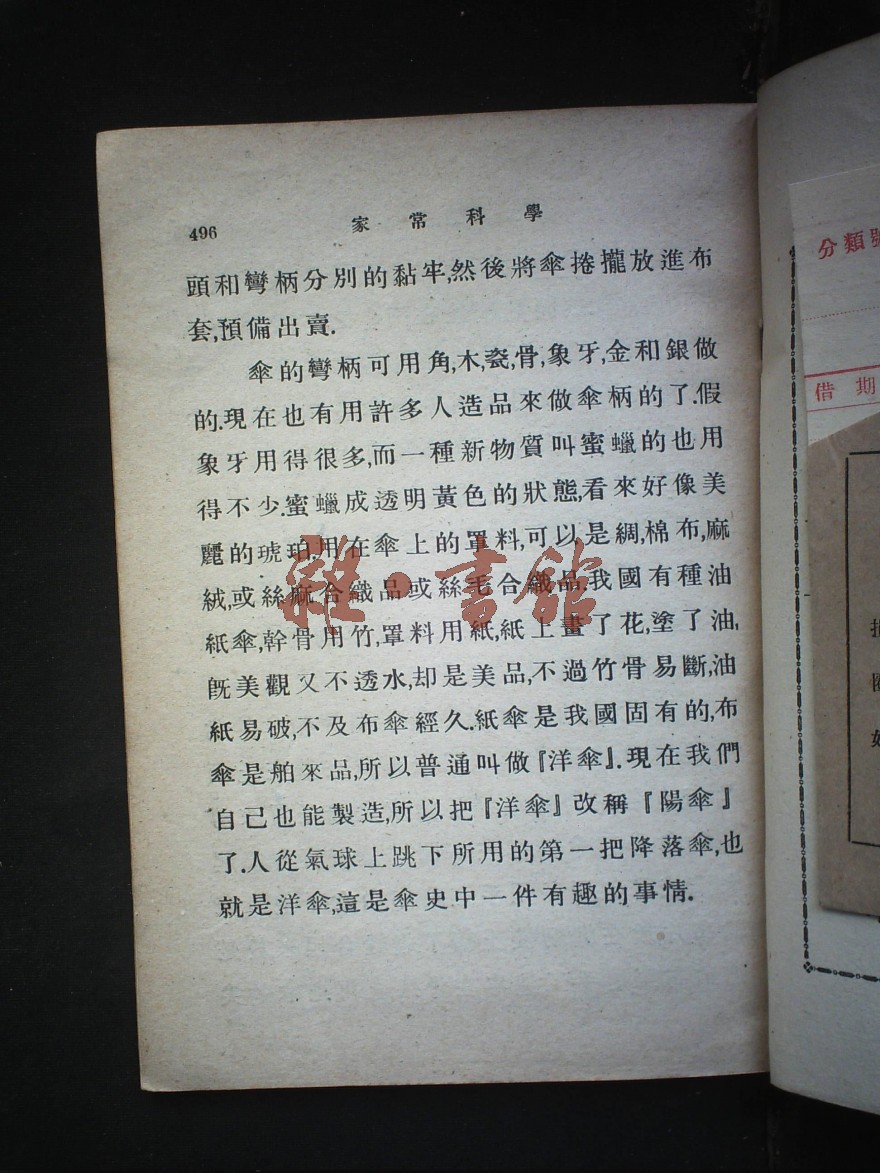 496
家常科學
頭和彎柄分別的黏牢,然後將傘捲攏放進布
套,預備出賣.
傘的彎柄可用角,木,瓷,骨,象牙,金和銀做
的.現在也有用許多人造品來做傘柄的了.假
象牙用得很多,而一種新物質叫蜜蠟的也用
得不少.蜜蠟成透明黃色的狀態,看來好像美
麗的琥珀.用在傘上的罩料,可以是綢,棉布,麻
絨,或絲麻合織品或絲毛合織品.我國有種油
紙傘,幹骨用竹,罩料用紙,紙上畫了花,塗了油,
旣美觀又不透水,却是美品,不過竹骨易斷,油
紙易破,不及布傘經久.紙傘是我國固有的,布
傘是舶來品,所以普通叫做『洋傘』.現在我們
自己也能製造,所以把『洋傘』改稱『陽傘』
了.人從氣球上跳下所用的第一把降落傘,也
就是洋傘,這是傘史中一件有趣的事情.
雜·書館
分類號
借期